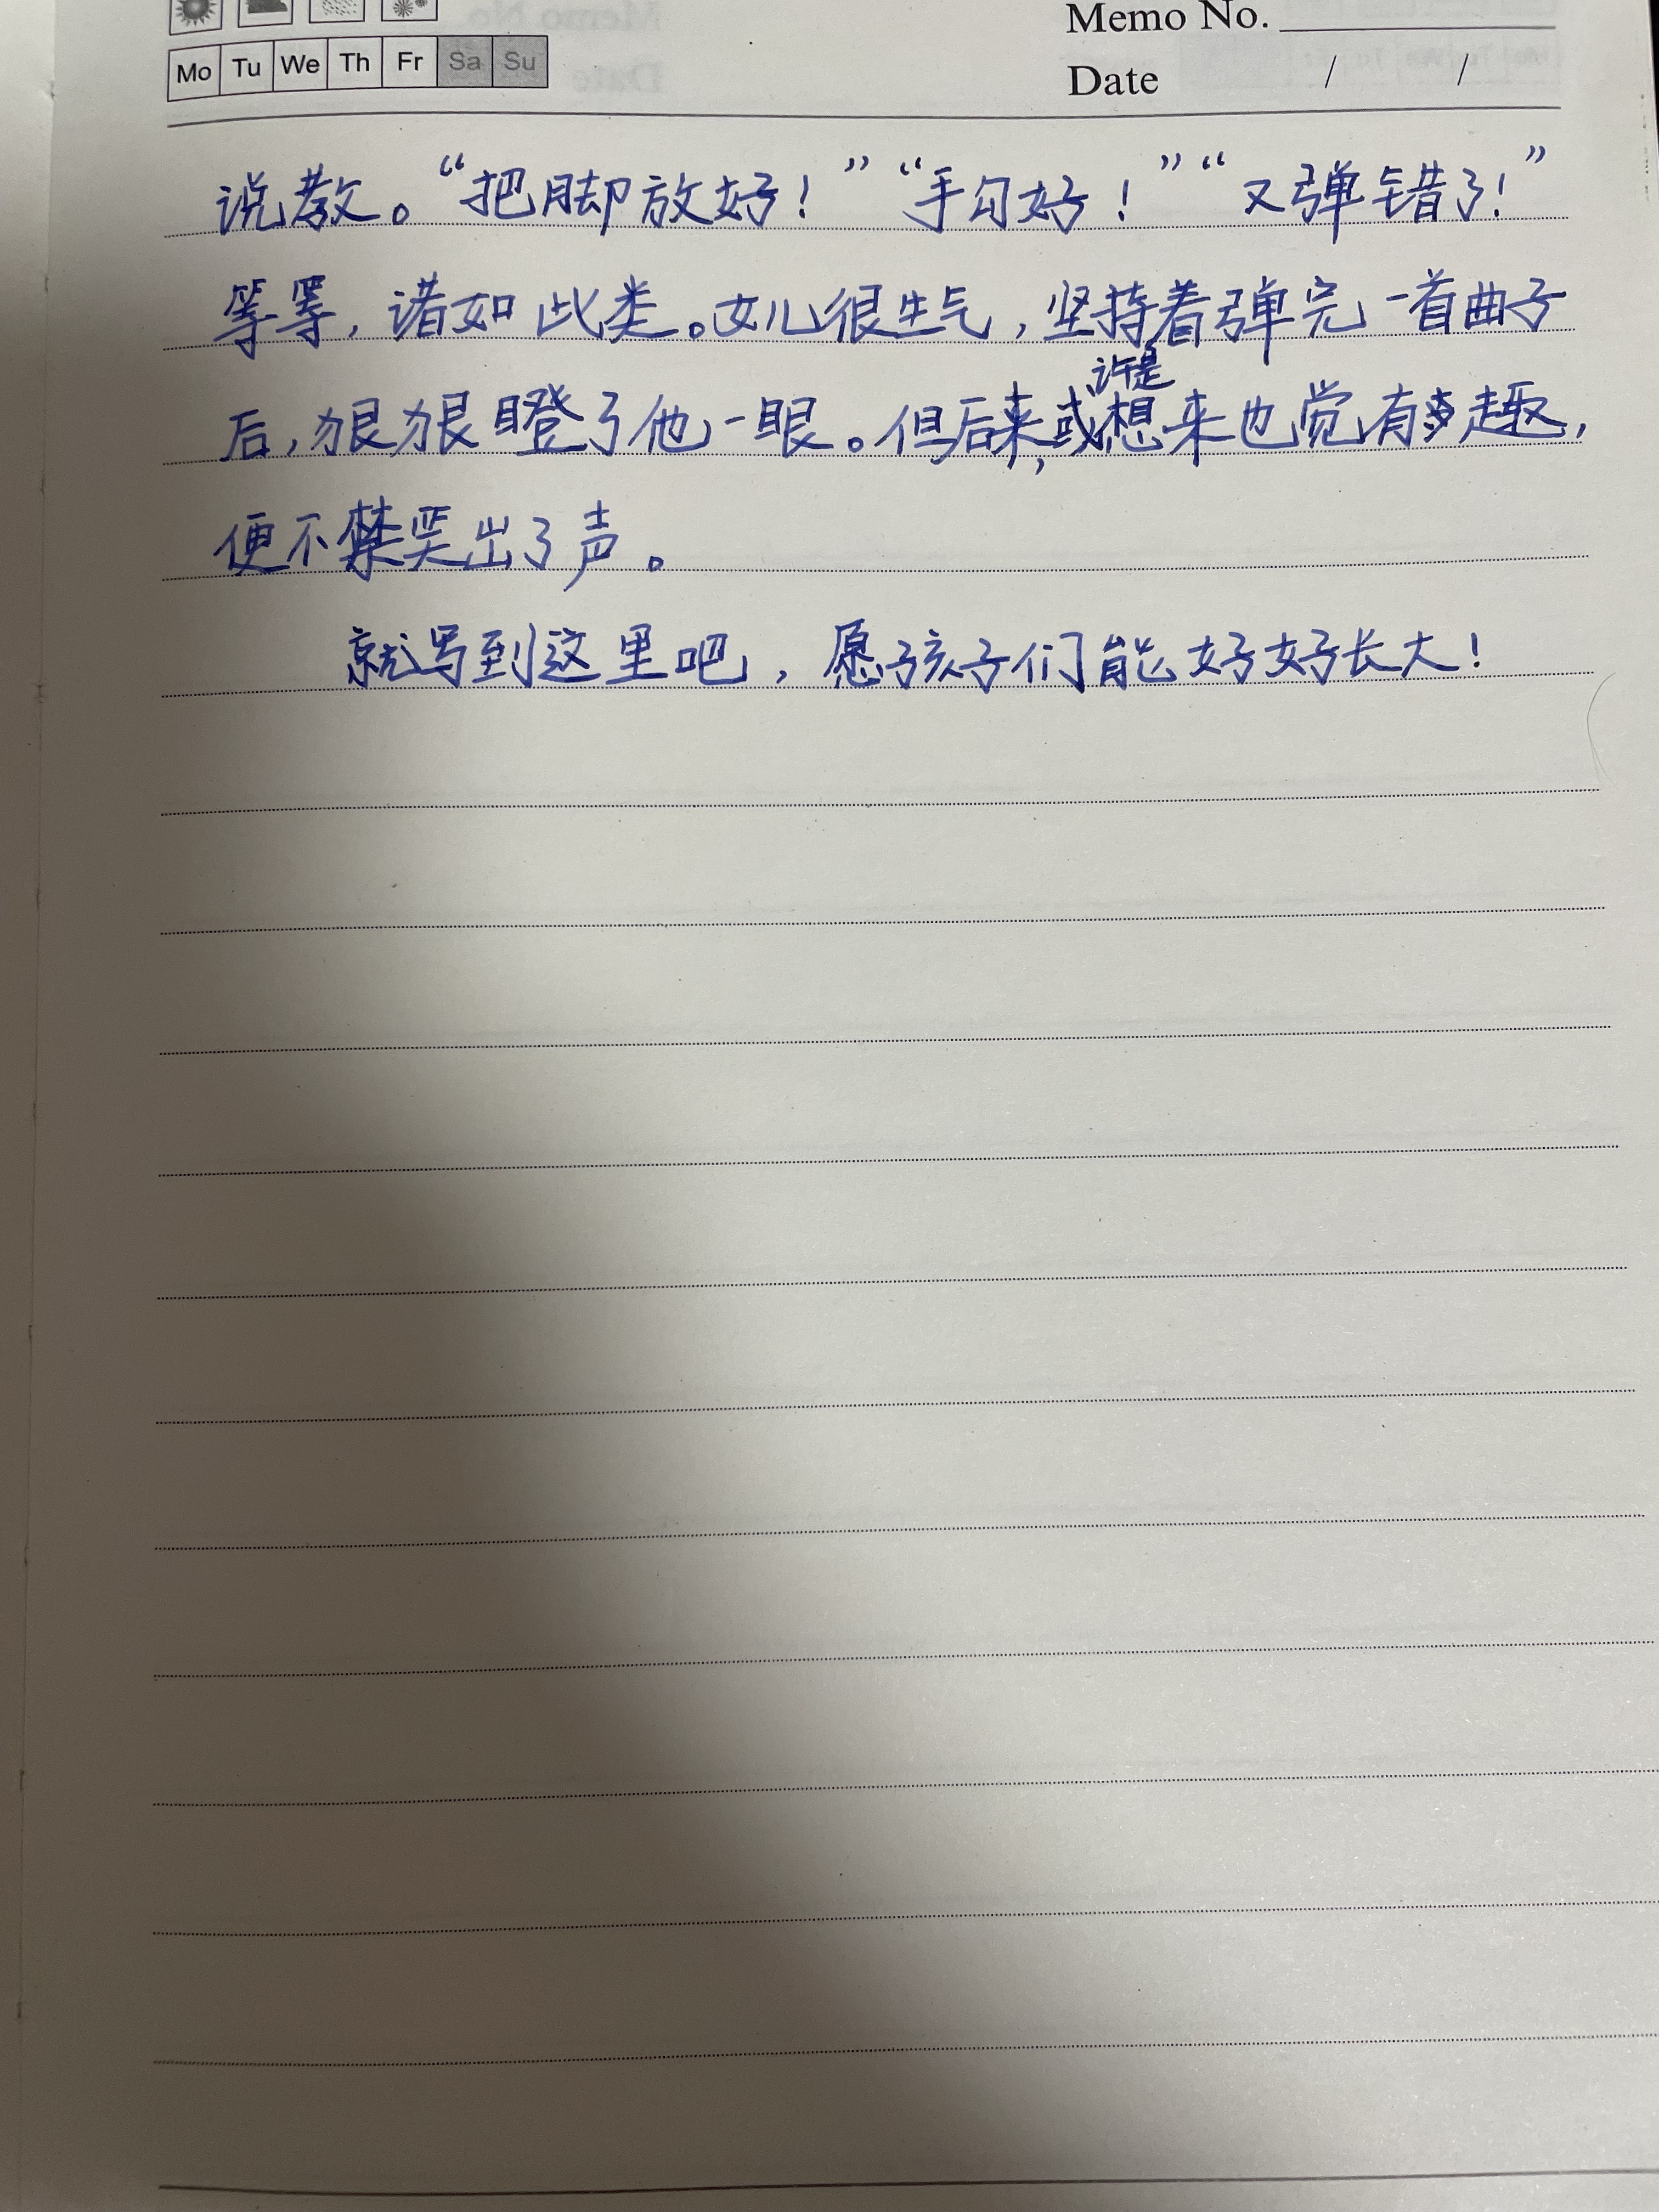 Memo No.
Mo Tu We Th Fr Sa Su
Date / /
说教。“把脚放好！”“手勾好！”“又弹错了！”
等等，诸如此类。女儿很生气，坚持着弹完一首曲子
许是
后，狠狠瞪了他一眼。但后来，或想来也觉有趣，
便不禁笑出了声。
就写到这里吧，愿孩子们能好好长大！